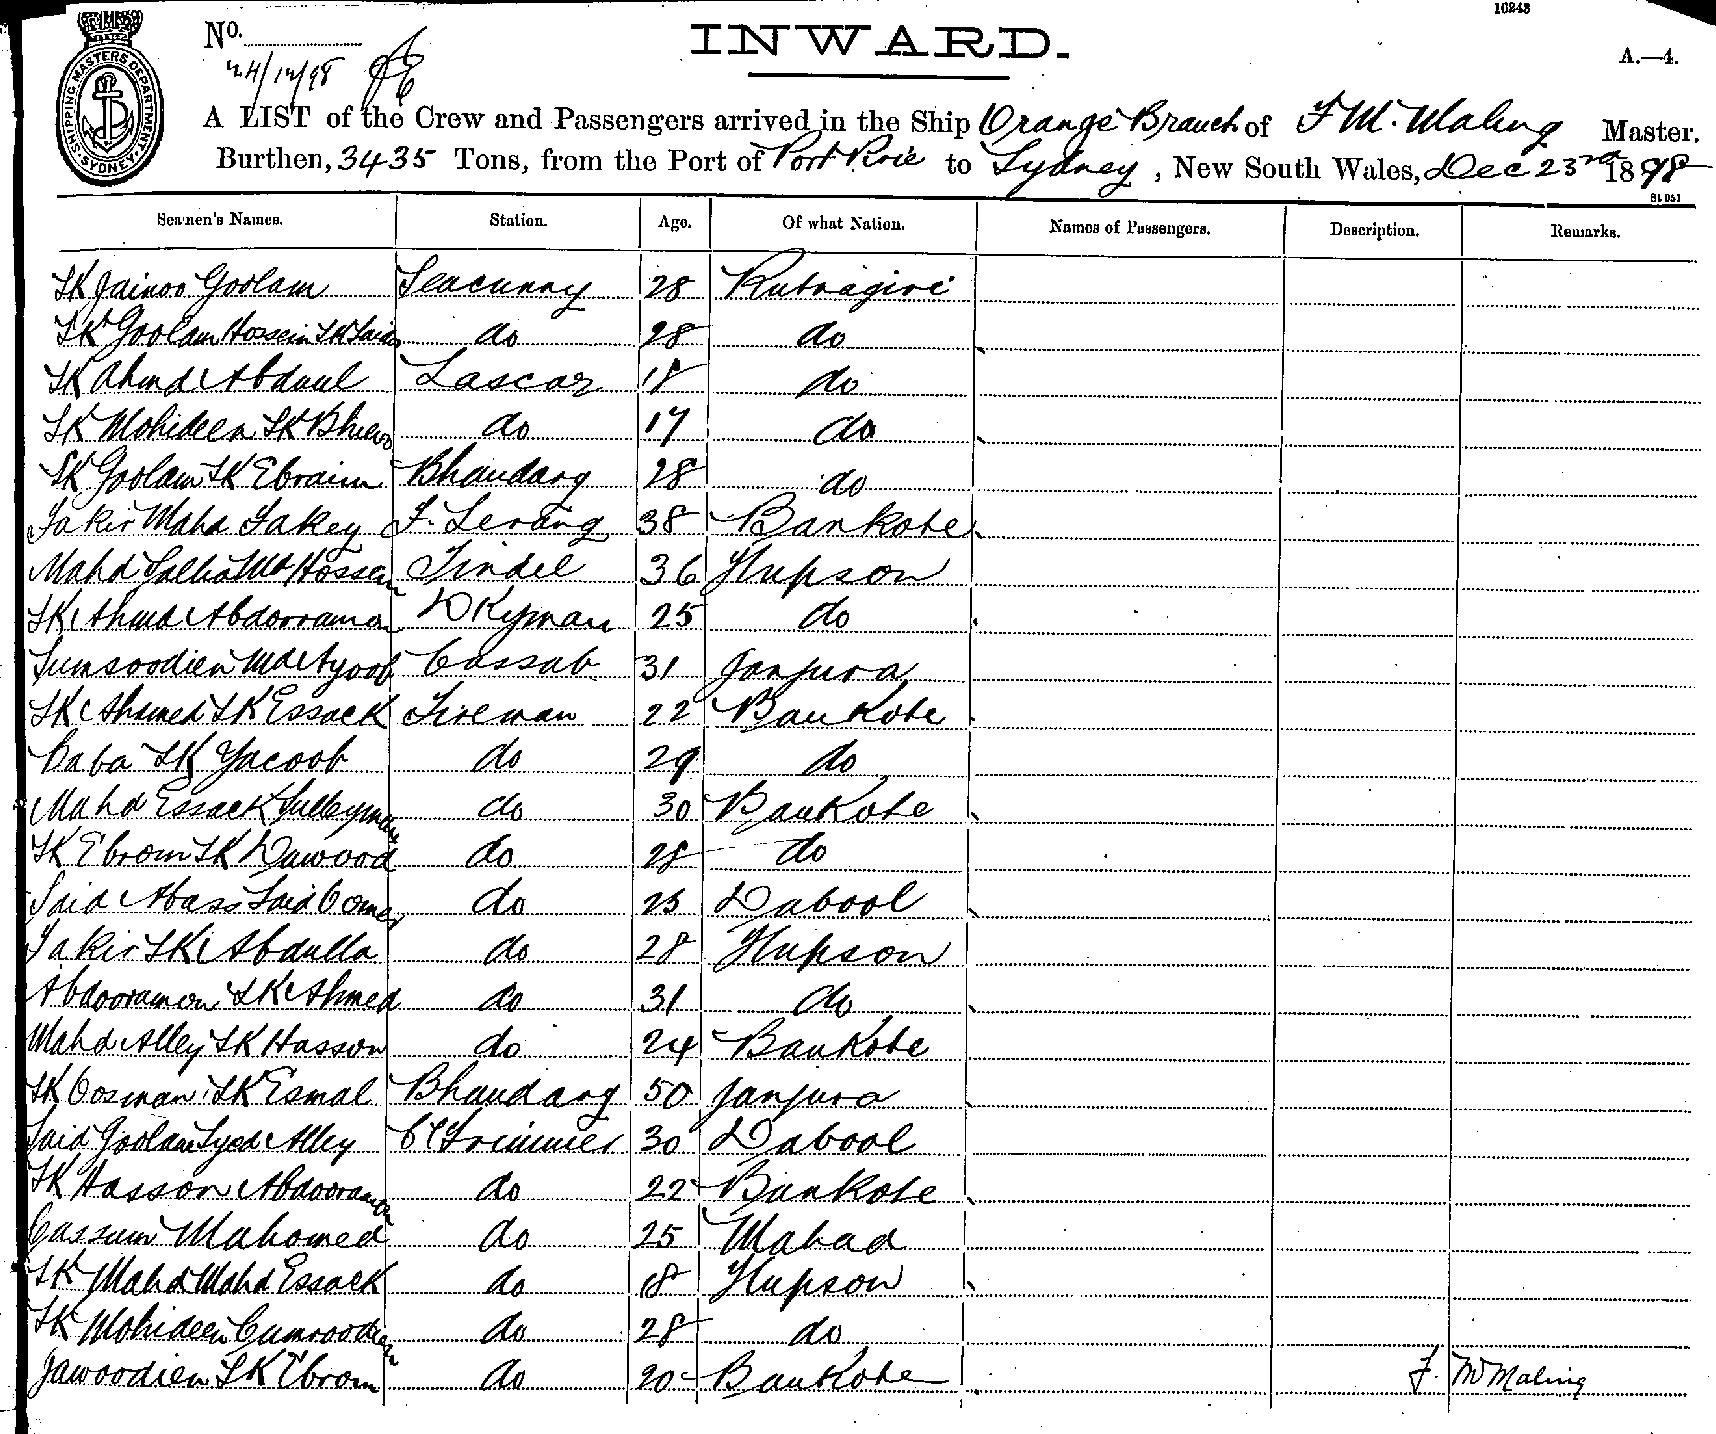 10243
No.
INWARD.
A.—4.
24/12/98
SHIPPING MASTERS DEPARTMENT SYDNEY
A LIST of the Crew and Passengers arrived in the Ship Orange Branch of F M. Maling Master.
Burthen, 3435 Tons, from the Port of Port Pirie to Sydney, New South Wales, Dec 23rd 1898
Seamen's Names. Station. Age. Of what Nation. Names of Passengers. Description. Remarks.
SK Jainoo Goolam Seacunny 28 Rutnagiri
SK Goolam Hossein SK Said do 28 do
SK Ahmd Abdul Lascar 18 do
SK Mohideen SK Bhiewo do 17 do
SK Goolam SK Ebraim Bhandary 28 do
Fakir Mahd Fakey F. Serang 38 Bankote
Mahd Md Hossein Tindel 36 Hupson
SK Ahmd Abdooramon DKyman 25 do
Sumsoodien Md Ayoob Cassab 31 Janjura
SK Ahamed SK Essack Fireman 22 Bankote
Baba SK Yacoob do 29 do
Mahd Essack Sulleyman do 30 Bankote
SK Ebrom SK Dawood do 28 do
Said Abass Said Oomer do 25 Dabool
Fakir SK Abdulla do 28 Hupson
Abdooramon SK Ahmed do 31 do
Mahd Alley SK Hasson do 24 Bankote
SK Oosman SK Esmal Bhandary 50 Janjura
Said Goolam Syed Alley Cl Trimmer 30 Dabool
SK Hasson Abdooramon do 22 Bankote
Cassum Mahomed do 25 Mahad
SK Mahd Mahd Essack do 18 Hupson
SK Mohideen Cumroodien do 28 do
Jawoodien SK Ebrom do 20 Bankote
F. M Maling